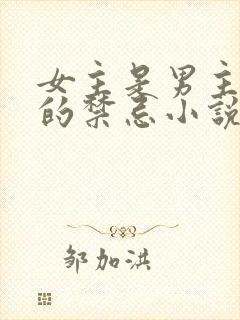 女主是男主
的禁忌小説
邹加洪